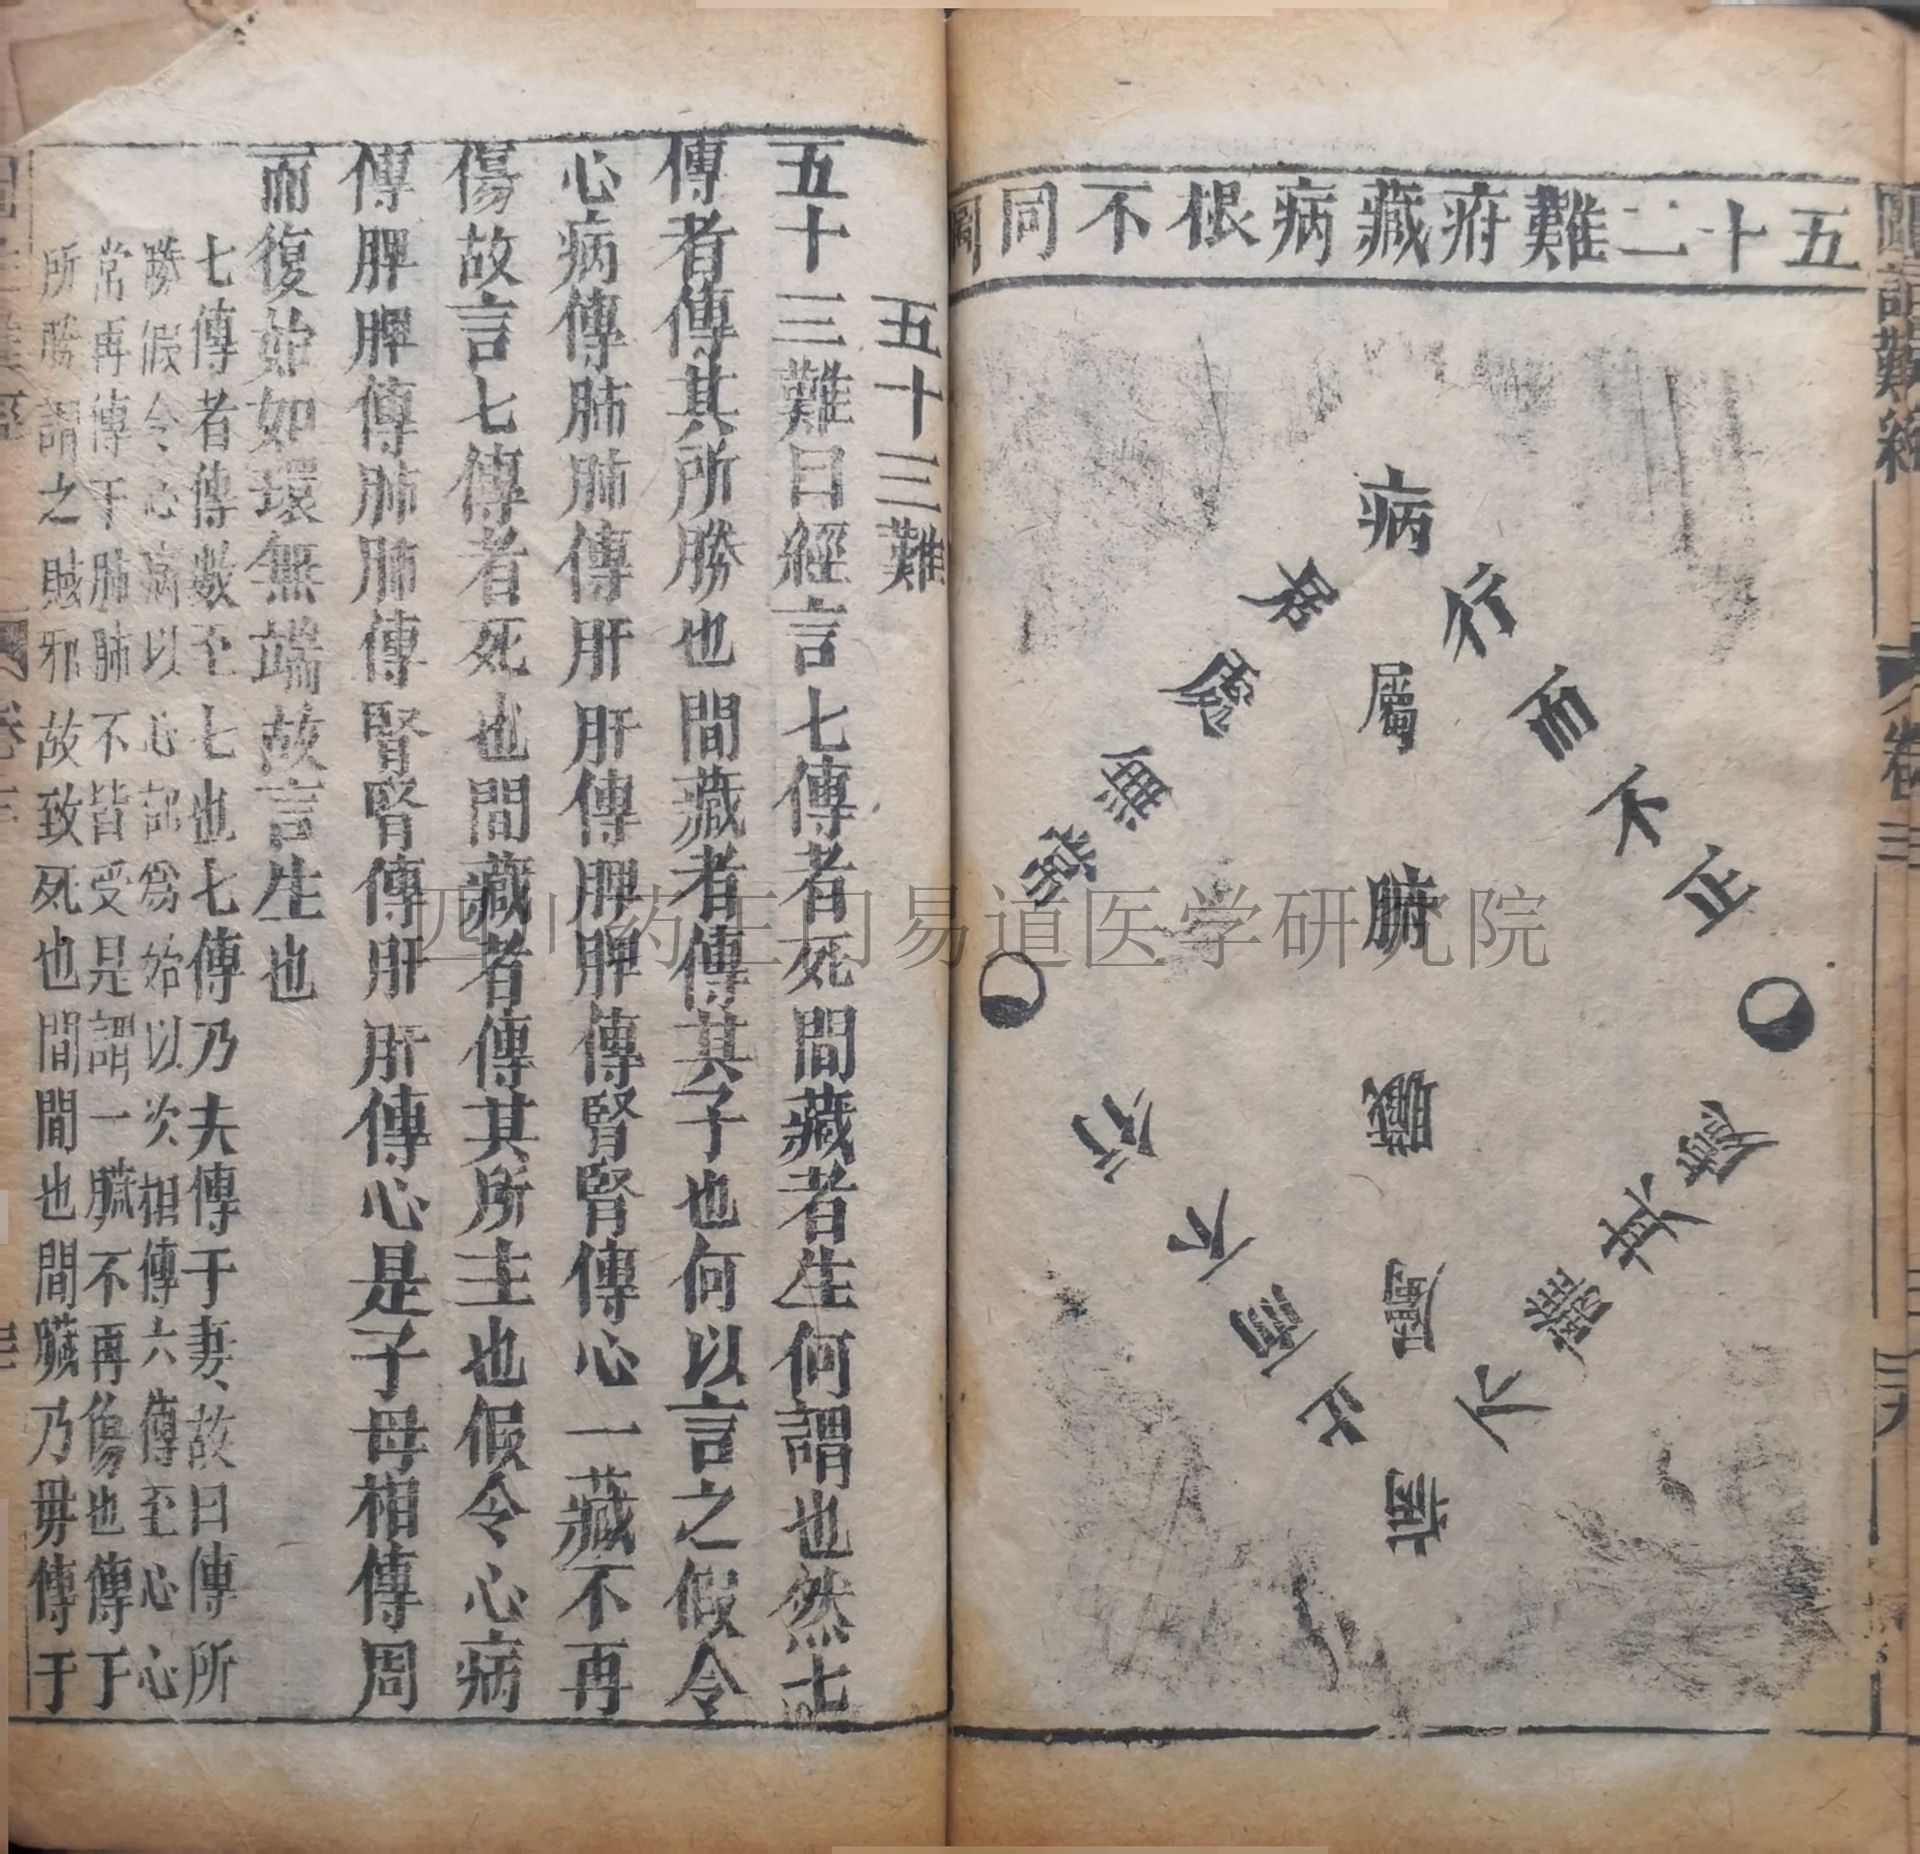 五十二難府藏病根不同圖
病
行而不正
居處無常
屬
腑
臓
屬
處其器不
行不而止
病
卷三
五十三難
五十三難曰經言七傳者死間藏者生何謂也然七
傳者傳其所勝也間藏者傳其子也何以言之假令
心病傳肺肺傳肝肝傳脾脾傳腎腎傳心一藏不再
傷故言七傳者死也間藏者傳其所主也假令心病
傳脾脾傳肺肺傳腎腎傳肝肝傳心是子母相傳周
而復始如環無端故言生也
七傳者傳數至七也七傳乃夫傳于妻故曰傳所
勝假令心病以心部爲始以次相傳六傳至心心
常再傳于肺肺不皆受是謂一臓不再傷也傳于
所勝謂之賊邪故致死也間間也間臓乃毋傳于
四川药王门易道医学研究院